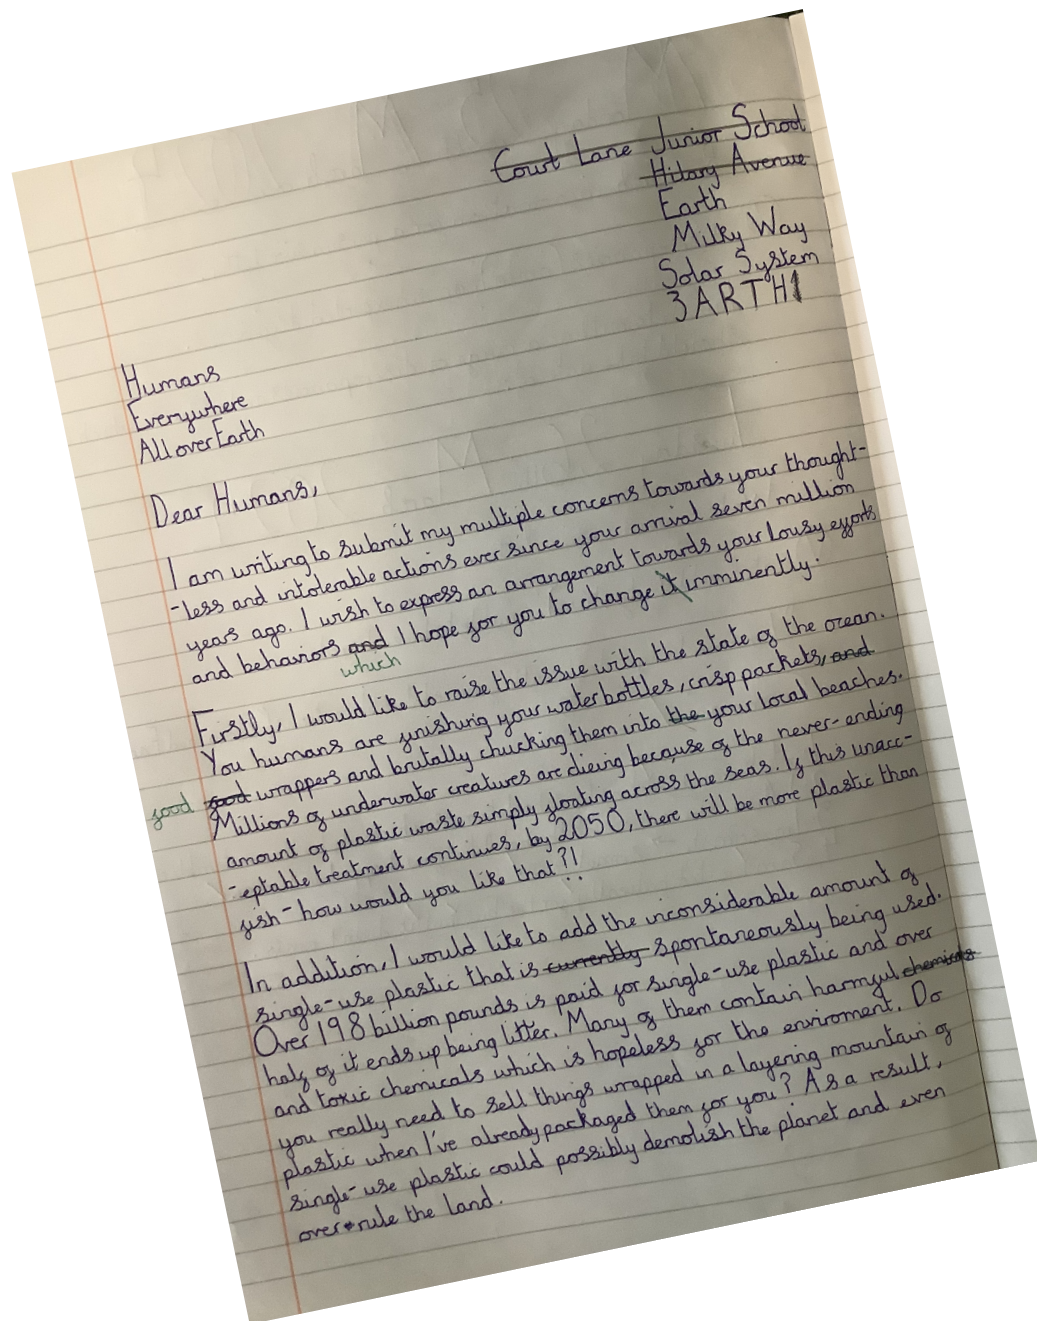 Court Lane Junior School
Hilary Avenue
Earth
Milky Way
Solar System
3ARTH1
Humans
Everywhere
All over Earth
Dear Humans,
I am writing to submit my multiple concerns towards your thought-
-less and intolerable actions ever since your arrival seven million
years ago. I wish to express an arrangement towards your lousy efforts
and behaviors and I hope for you to change it imminently.
which
Firstly, I would like to raise the issue with the state of the ocean.
You humans are finishing your water bottles, crisp packets, and
food food wrappers and brutally chucking them into the your local beaches.
Millions of underwater creatures are dieing because of the never-ending
amount of plastic waste simply floating across the seas. If this unacc-
-eptable treatment continues, by 2050, there will be more plastic than
fish - how would you like that?!
In addition, I would like to add the inconsiderable amount of
single-use plastic that is currently spontaneously being used.
Over 198 billion pounds is paid for single-use plastic and over
half of it ends up being litter. Many of them contain harmful chemicals
and toxic chemicals which is hopeless for the enviroment. Do
you really need to sell things wrapped in a layering mountain of
plastic when I've already packaged them for you? As a result,
single-use plastic could possibly demolish the planet and even
over-rule the land.